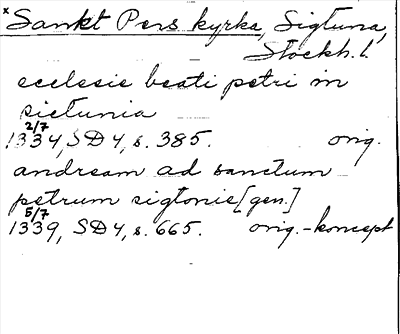 x Sankt Pers kyrka, Sigtuna,
Stockh. l.
ecclesie beati petri in
sictunia
2/7
1334, SD 4, s. 385. orig.
andream ad sanctum
petrum sigtonie [gen.]
5/7
1339, SD 4, s. 665. orig.-koncept